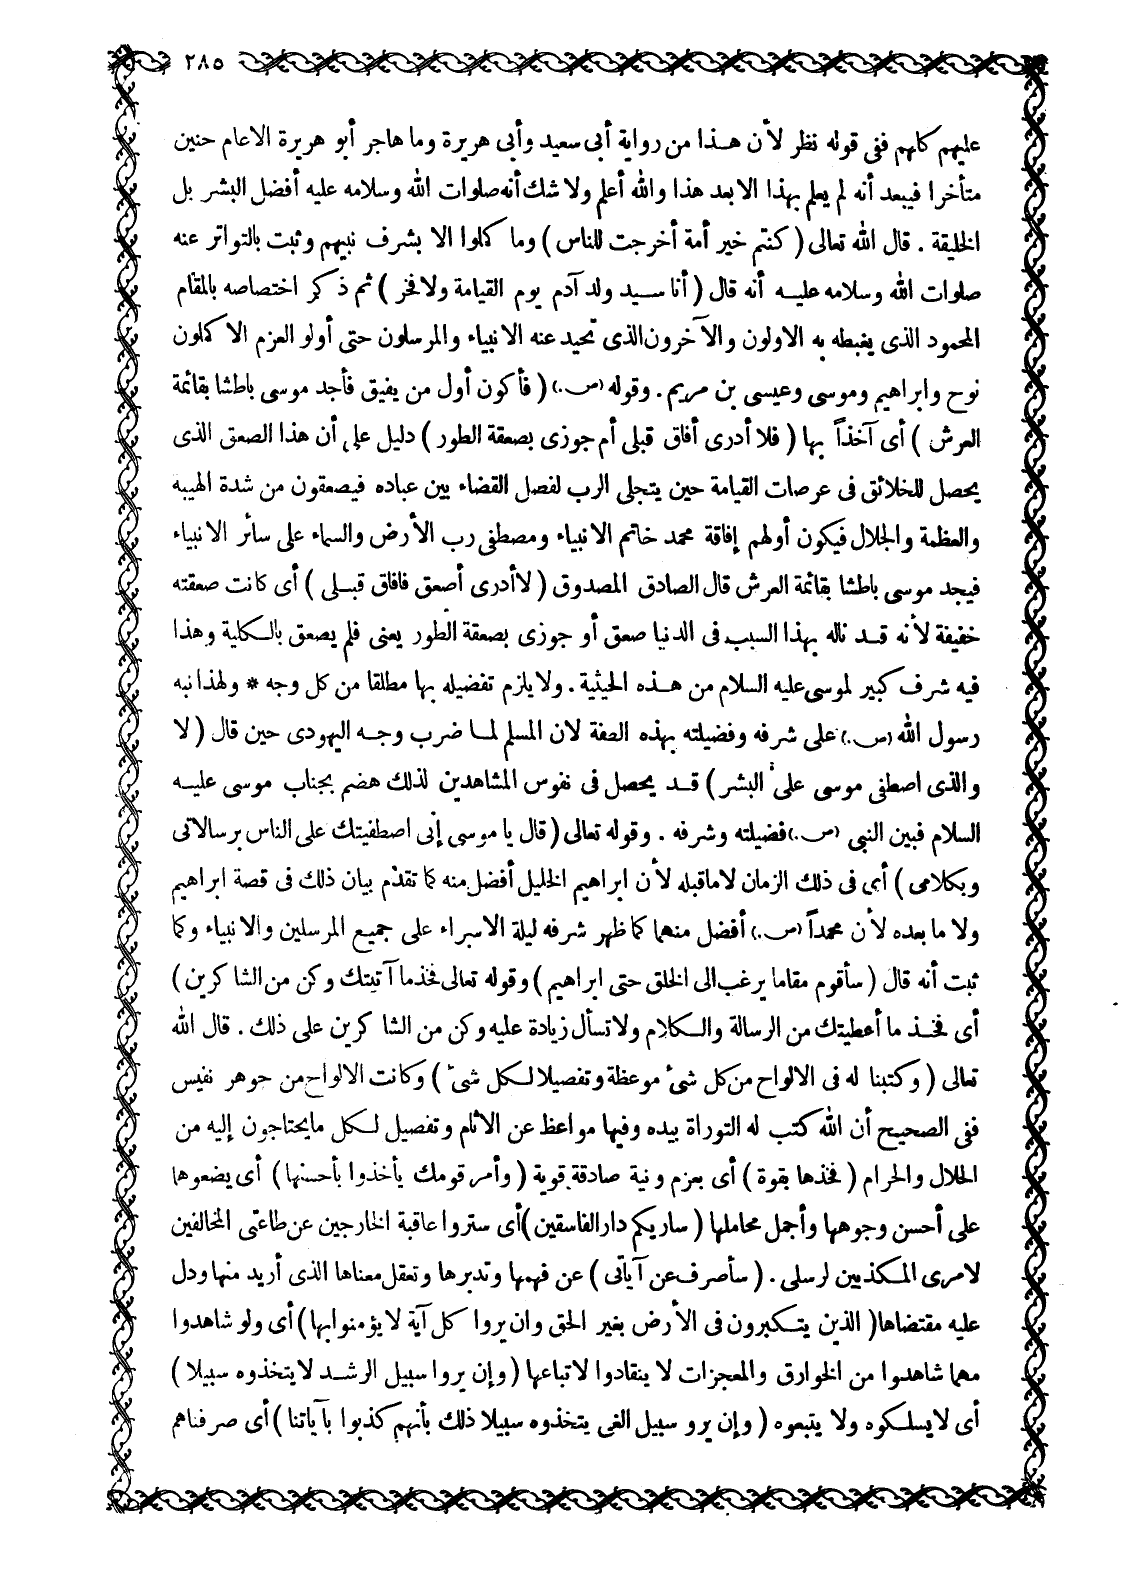 ٢٨٥
عليهم كلهم ففى قوله نظر لأن هـذا من رواية أبى سعيد وأبى هريرة وما هاجر أبو هريرة الاعام حنين
متأخرا فيبعد أنه لم يعلم بهذا الا بعد هذا والله أعلم ولا شك أنه صلوات الله وسلامه عليه أفضل البشر بل
الخليقة . قال الله تعالى ( كنتم خير أمة أخرجت للناس ) وما كملوا الا بشرف نبيهم وثبت بالتواتر عنه
صلوات الله وسلامه عليـه أنه قال ( أنا سـيد ولد آدم يوم القيامة ولا فخر ) ثم ذكر اختصاصه بالمقام
المحمود الذى يغبطه به الاولون والآخرون الذى تحيد عنه الانبياء والمرسلون حتى أولو العزم الا كملون
نوح وابراهيم وموسى وعيسى بن مريم . وقوله (ص.) ( فأكون أول من يفيق فأجد موسى باطشا بقائمة
العرش ) أى آخذاً بها ( فلا أدرى أفاق قبلى أم جوزى بصعقة الطور ) دليل على أن هذا الصعق الذى
يحصل للخلائق فى عرصات القيامة حين يتجلى الرب لفصل القضاء بين عباده فيصعقون من شدة الهيبه
والعظمة والجلال فيكون أولهم إفاقة محمد خاتم الانبياء ومصطفى رب الأرض والسماء على سائر الانبياء
فيجد موسى باطشا بقائمة العرش قال الصادق المصدوق ( لا أدرى أصعق فافاق قبـلى ) أى كانت صعقته
خفيفة لأنه قـد ناله بهذا السبب فى الدنيا صعق أو جوزى بصعقة الطور يعنى فلم يصعق بالكلية وهذا
فيه شرف كبير لموسى عليه السلام من هـذه الحيثية . ولا يلزم تفضيله بها مطلقا من كل وجه * ولهذا نبه
رسول الله (ص.) على شرفه وفضيلته بهذه الصفة لان المسلم لمـا ضرب وجـه اليهودى حين قال ( لا
والذى اصطفى موسى على البشر ) قـد يحصل فى نفوس المشاهدين لذلك هضم بجناب موسى عليـه
السلام فبين النبى (ص.) فضيلته وشرفه . وقوله تعالى ( قال يا موسى إنى اصطفيتك على الناس برسالاتى
وبكلامى ) أى فى ذلك الزمان لا ماقبله لأن ابراهيم الخليل أفضل منه كما تقدّم بيان ذلك فى قصة ابراهيم
ولا ما بعده لأن محمداً (ص.) أفضل منهما كما ظهر شرفه ليلة الاسراء على جميع المرسلين والانبياء وكما
ثبت أنه قال ( سأقوم مقاما يرغب الى الخلق حتى ابراهيم ) وقوله تعالى فخذ ما آتيتك وكن من الشاكرين )
أى فخـذ ما أعطيتك من الرسالة والكلام ولا تسأل زيادة عليه وكن من الشاكرين على ذلك . قال الله
تعالى ( وكتبنا له فى الالواح من كل شئ موعظة وتفصيلا لـكل شئ ) وكانت الالواح من جوهر نفيس
ففى الصحيح أن الله كتب له التوراة بيده وفيها مواعظ عن الاثام وتفصيل لـكل مايحتاجون إليه من
الحلال والحرام ( فخذها بقوة ) أى بعزم ونية صادقة قوية ( وأمر قومك يأخذوا بأحسنها ) أى يضعوها
على أحسن وجوهها وأجمل محاملها ( ساريكم دار الفاسقين ) أى ستروا عاقبة الخارجين عن طاعتى المخالفين
لامرى المـكذبين لرسلى . ( سأصرف عن آياتى ) عن فهمها وتدبرها وتعقل معناها الذى أريد منها ودل
عليه مقتضاها ( الذين يتـكبرون فى الأرض بغير الحق وان يروا كل آية لا يؤمنوا بها ) أى ولو شاهدوا
مهما شاهدوا من الخوارق والمعجزات لا ينقادوا لاتباعها ( وإن يروا سبيل الرشـد لا يتخذوه سبيلا )
أى لا يسلـكوه ولا يتبعوه ( وإن يرو سبيل الغى يتخذوه سبيلا ذلك بأنهم كذبوا بآياتنا ) أى صرفناهم